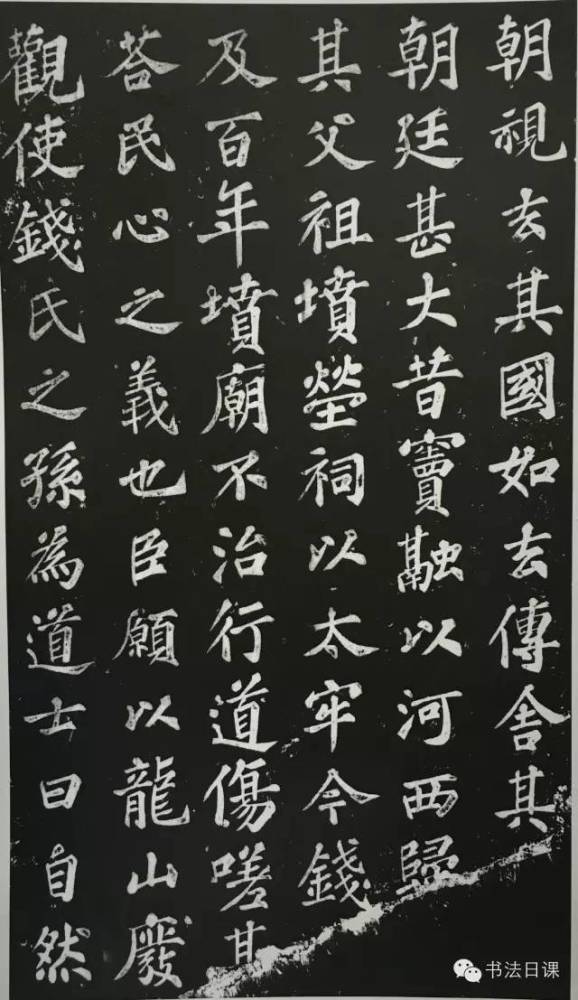 朝視去其國如去傳舍其
朝廷甚大昔竇融以河西歸
其父祖墳塋祠以太牢今錢
及百年墳廟不治行道傷嗟甚
荅民心之義也臣願以龍山廢
觀使錢氏之孫為道士曰自然
书法日课